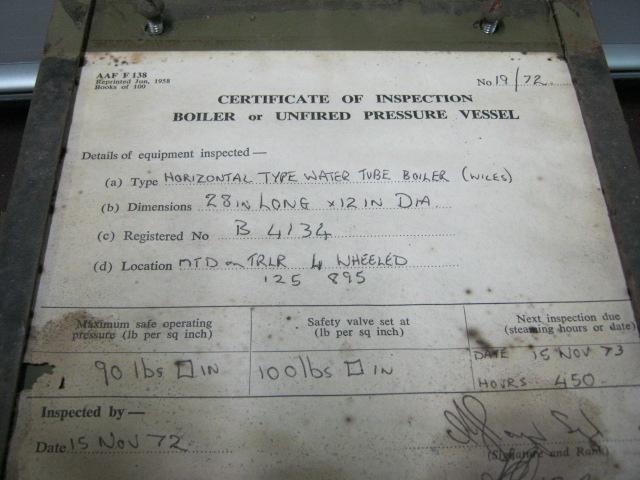 AAF F 138
Reprinted Jun, 1958
Books of 100
No 19/72
CERTIFICATE OF INSPECTION
BOILER or UNFIRED PRESSURE VESSEL
Details of equipment inspected—
(a) Type HORIZONTAL TYPE WATER TUBE BOILER (WILES)
(b) Dimensions 28 IN LONG x 12 IN DIA
(c) Registered No B 4134
(d) Location MTD on TRLR 4 WHEELED
125 895
Maximum safe operating pressure (lb per sq inch)
Safety valve set at (lb per sq inch)
Next inspection due (steaming hours or date)
90 lbs □ IN
100 lbs □ IN
DATE 15 NOV 73
HOURS 450
Inspected by—
Date 15 NOV 72
(Signature and Rank)